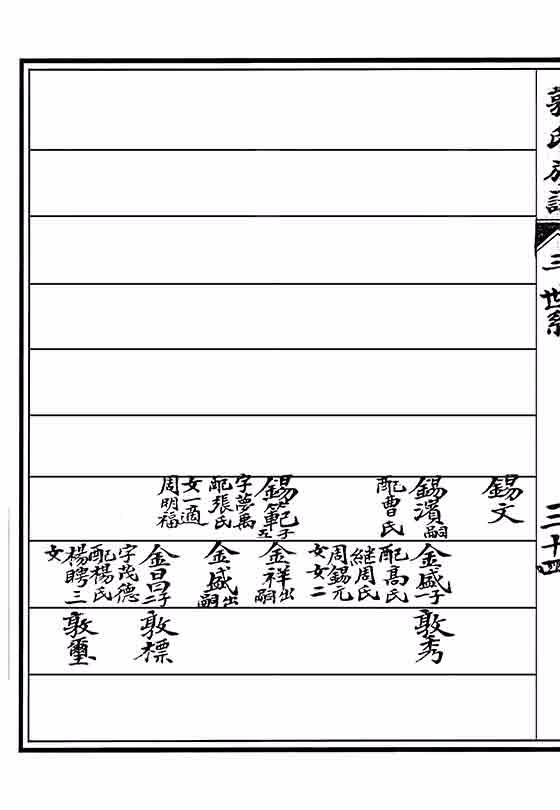 郭氏族譜
三 世系
三十四
錫文
錫濱嗣
配曹氏
錫範子五
字夢萬
配張氏
女一適
周明福
金盛子一
配高氏
繼周氏
周錫元
女二
女
金祥出嗣
金盛出嗣
金昌子二
字茂德
配楊氏
楊聘三
女
敦秀
敦標
敦璽